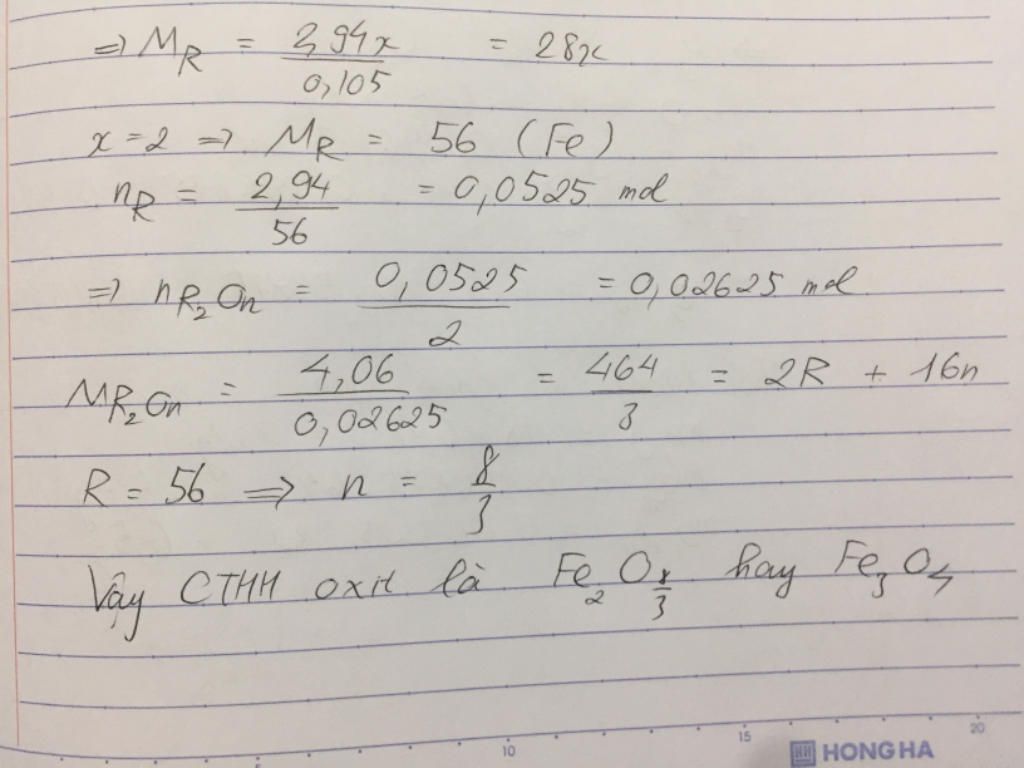 => M_R = 2,94x / 0,105 = 28x
x = 2 => M_R = 56 (Fe)
n_R = 2,94 / 56 = 0,0525 mol
=> n_R₂O_n = 0,0525 / 2 = 0,02625 mol
M_R₂O_n = 4,06 / 0,02625 = 464 / 3 = 2R + 16n
R = 56 => n = 8 / 3
Vậy CTHH oxit là Fe₂O_8/3 hay Fe₃O₄
10 15 20
HH HONG HA